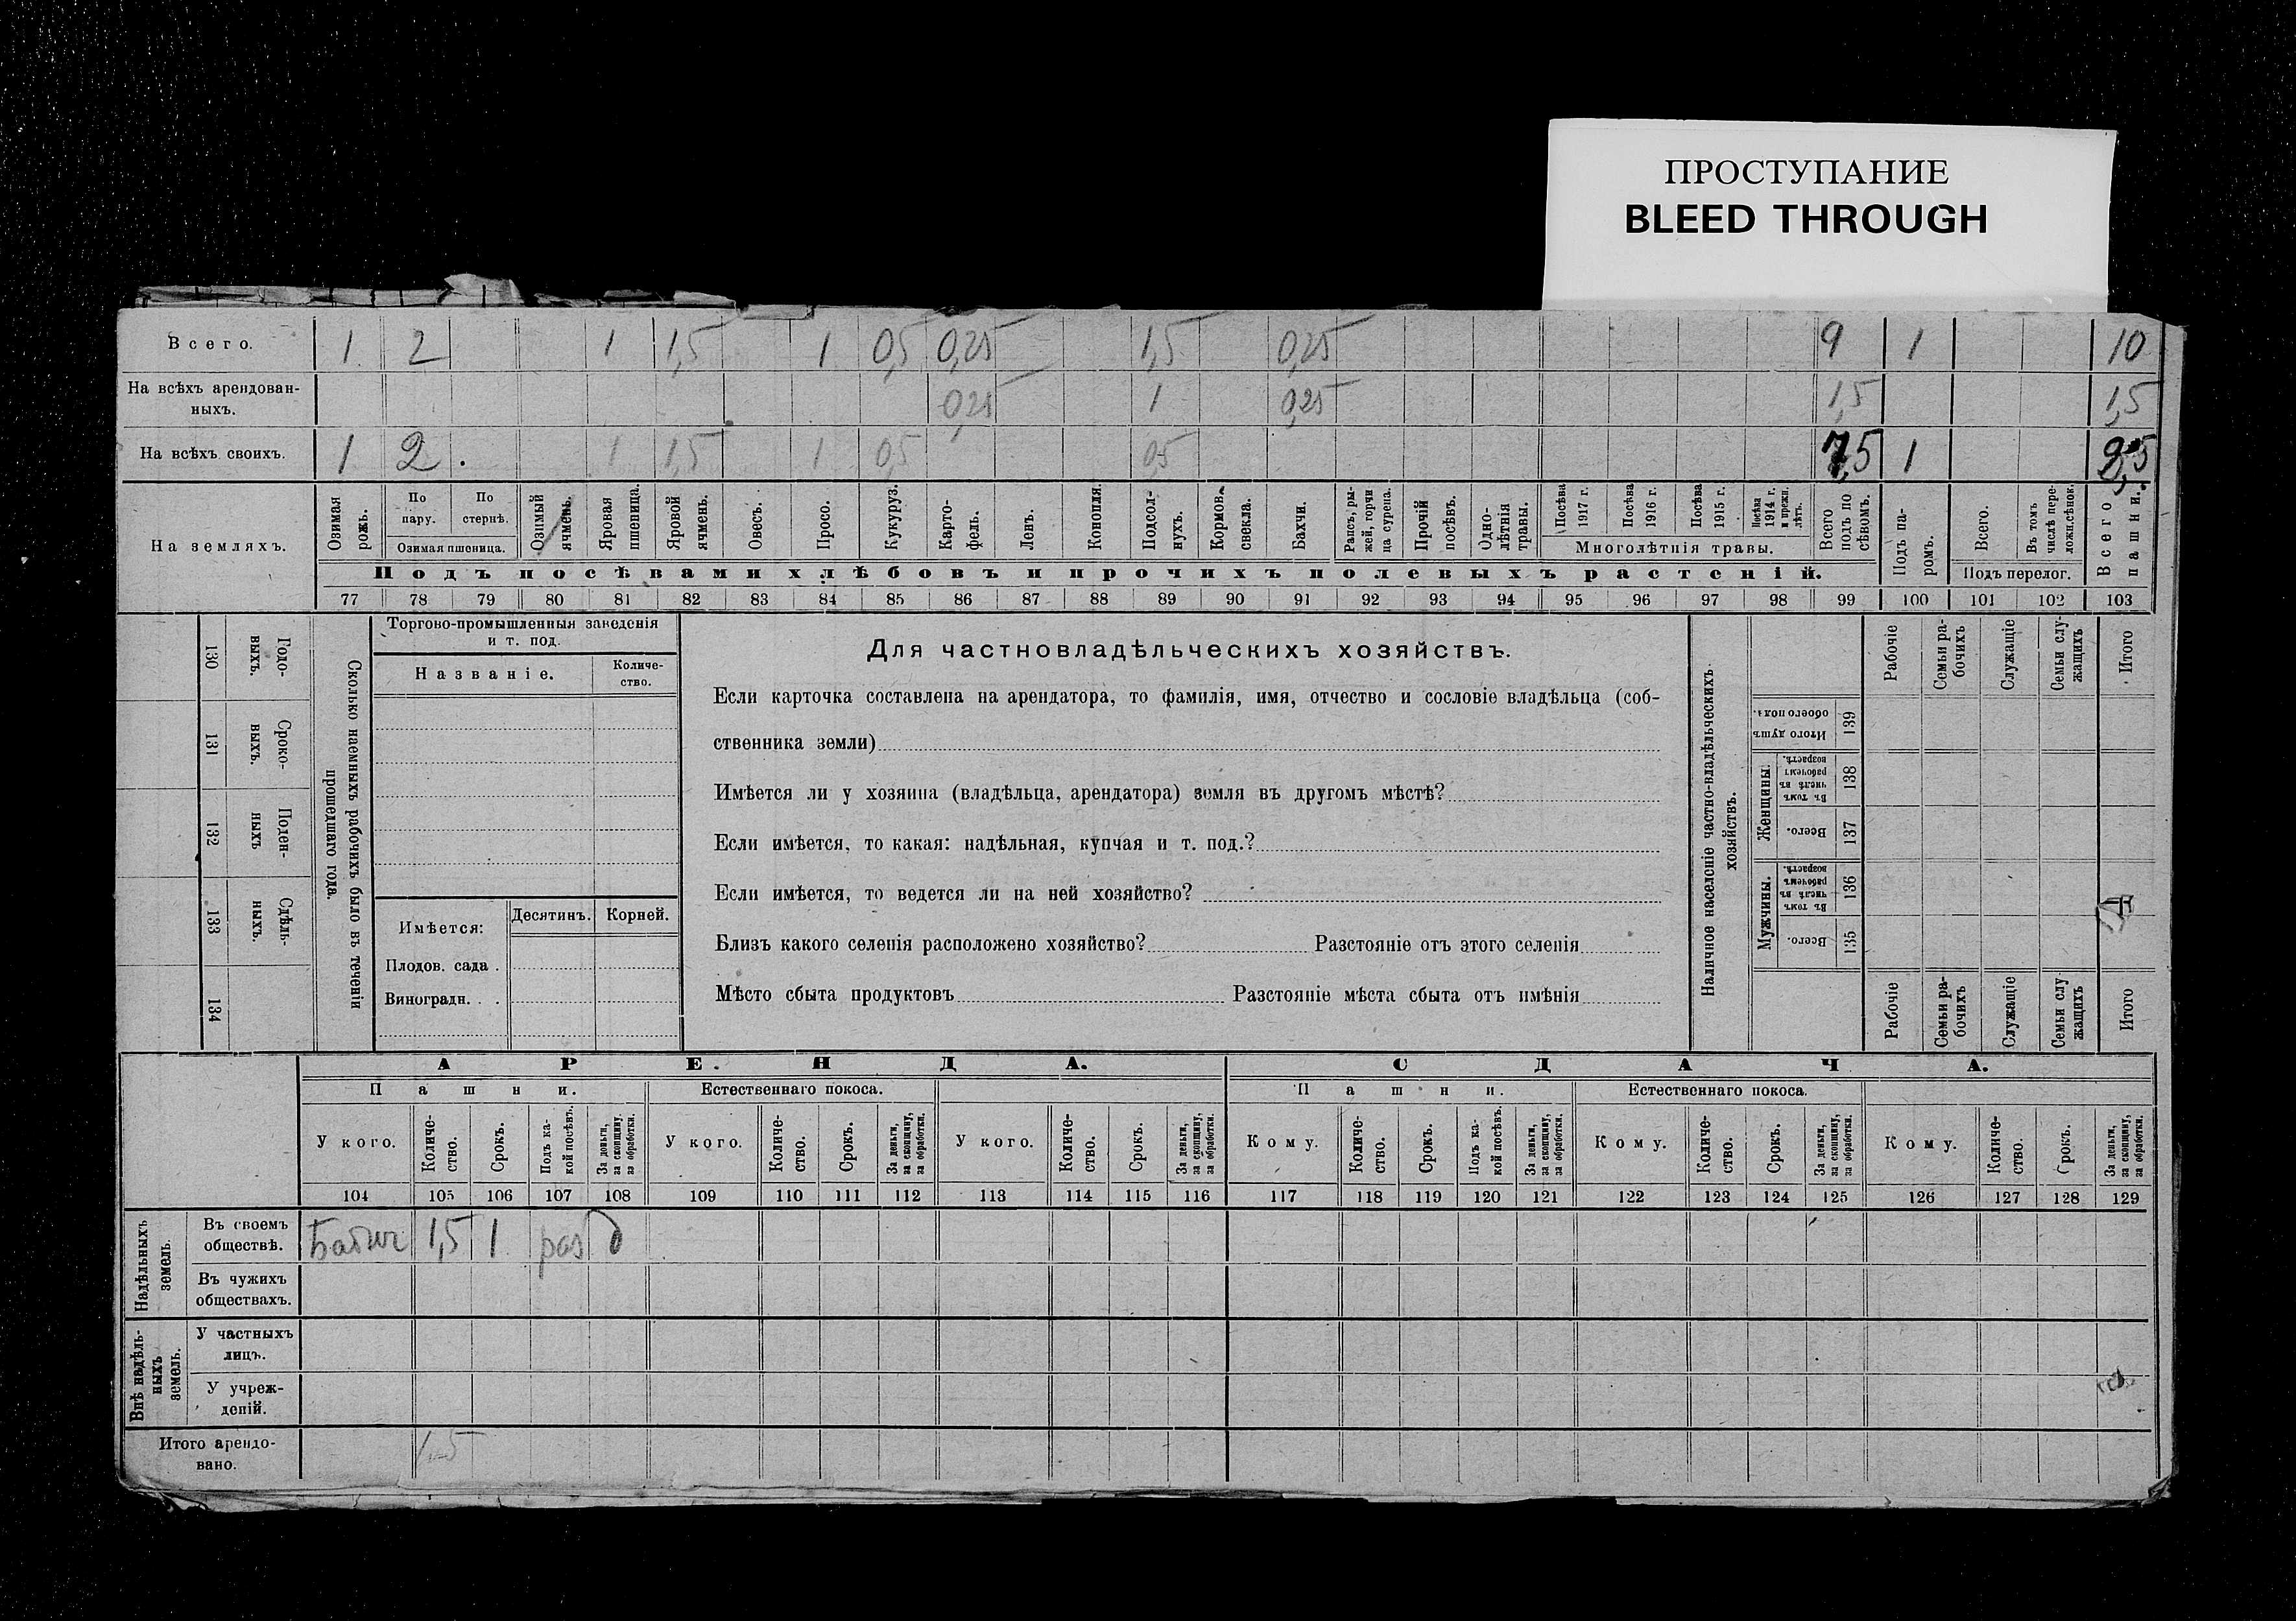 ПРОСТУПАНИЕ
BLEED THROUGH
Всего. 1 2 1 1,5 1 0,5 0,25 1,5 0,25 9 1 10
На всѣхъ арендован-
ныхъ. 0,25 1 0,25 1,5 1,5
На всѣхъ своихъ. 1 2 1 1,5 1 0,5 0,5 7,5 1 8,5
На земляхъ.
Озимая рожь.
По пару.
По стернѣ.
Озимая пшеница.
Озимый ячмень.
Яровая пшеница.
Яровой ячмень.
Овесъ.
Просо.
Кукуруз.
Карто-
фель.
Ленъ.
Конопля.
Подсол-
нухъ.
Кормов.
свекла.
Бахчи.
Рапсъ, ры-
жей, горчи
ца сурепа.
Прочій
посѣвъ.
Одно-
лѣтнія
травы.
Посѣва
1917 г.
Посѣва
1916 г.
Посѣва
1915 г.
Посѣва
1914 г.
и прежн.
лѣтъ.
Многолѣтнія травы.
Всего
подъ по
сѣвомъ.
Подъ па-
ромъ.
Всего.
Въ томъ
числѣ пере-
ложн.сѣнок.
Подъ перелог.
Всего
пашни.
Подъ посѣвами хлѣбовъ и прочихъ полевыхъ растеній.
77 78 79 80 81 82 83 84 85 86 87 88 89 90 91 92 93 94 95 96 97 98 99 100 101 102 103
130 Годо-
выхъ.
131 Сроко-
выхъ.
132 Поден-
ныхъ
133 Сдѣль-
ныхъ.
134
Сколько наемныхъ рабочихъ было въ теченіи
прошедшаго года.
Торгово-промышленныя заведенія
и т. под.
Названіе.
Количе-
ство.
Имѣется:
Десятинъ.
Корней.
Плодов. сада .
Виноградн. . .
Для частновладѣльческихъ хозяйствъ.
Если карточка составлена на арендатора, то фамилія, имя, отчество и сословіе владѣльца (соб-
ственника земли)
Имѣется ли у хозяина (владѣльца, арендатора) земля въ другомъ мѣстѣ?
Если имѣется, то какая: надѣльная, купчая и т. под.?
Если имѣется, то ведется ли на ней хозяйство?
Близъ какого селенія расположено хозяйство? Разстояніе отъ этого селенія
Мѣсто сбыта продуктовъ Разстояніе мѣста сбыта отъ имѣнія
Наличное населеніе частно-владѣльческихъ
хозяйствъ.
Рабочіе
Семьи ра-
бочихъ
Служащіе
Семьи слу-
жащихъ
Итого
Итого душъ
обоего пола.
139
Женщины.
Въ томъ
числѣ въ
рабочемъ
возрастѣ.
138
Всего.
137
Мужчины.
Въ томъ
числѣ въ
рабочемъ
возрастѣ.
136
Всего.
135
Рабочіе
Семьи ра-
бочихъ
Служащіе
Семьи слу
жащихъ
Итого
АРЕНДА.
СДАЧА.
Пашни.
Естественнаго покоса.
Пашни.
Естественнаго покоса.
У кого.
Количе-
ство.
Срокъ.
Подъ ка-
кой посѣвъ.
За деньги,
за скопщину,
за обработки.
У кого.
Количе-
ство.
Срокъ.
За деньги,
за скопщину,
за обработки.
У кого.
Количе-
ство.
Срокъ.
За деньги,
за скопщину,
за обработки.
Кому.
Количе-
ство.
Срокъ.
Подъ ка-
кой посѣвъ.
За деньги,
за скопщину,
за обработки.
Кому.
Количе-
ство.
Срокъ.
За деньги,
за скопщину,
за обработки.
Кому.
Количе-
ство.
Срокъ.
За деньги,
за скопщину,
за обработки.
104 105 106 107 108 109 110 111 112 113 114 115 116 117 118 119 120 121 122 123 124 125 126 127 128 129
Надѣльныхъ
земель.
Въ своемъ
обществѣ. 1,5 1 раз д
Въ чужихъ
обществахъ.
Внѣ надѣль-
ныхъ
земель.
У частныхъ
лицъ.
У учреж-
деній.
Итого арендо-
вано. 1-5